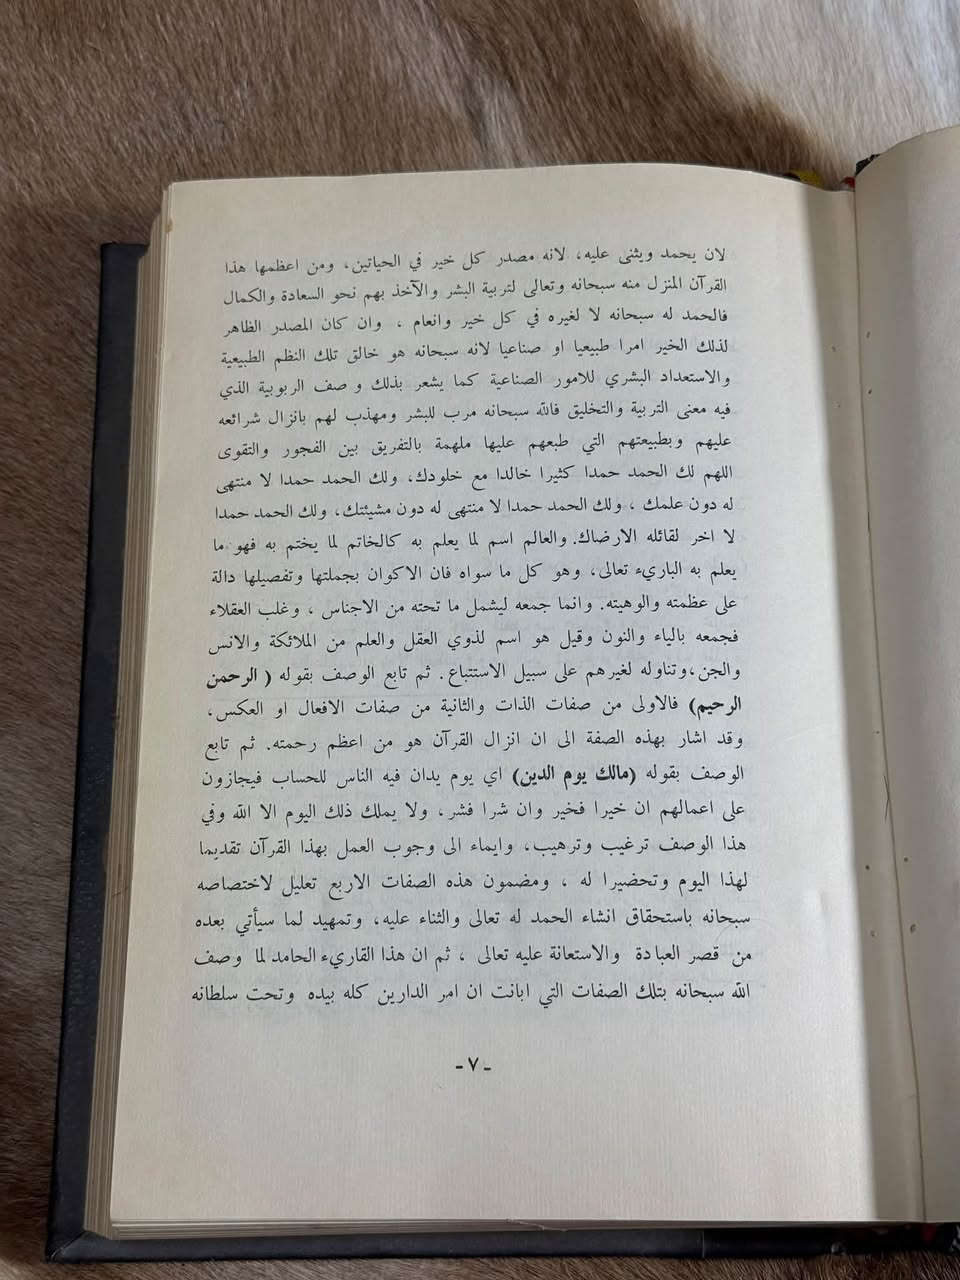 لان يحمد ويثنى عليه، لانه مصدر كل خير في الحياتين، ومن اعظمها هذا
القرآن المنزل منه سبحانه وتعالى لتربية البشر والآخذ بهم نحو السعادة والكمال
فالحمد له سبحانه لا لغيره في كل خير وانعام ، وان كان المصدر الظاهر
لذلك الخير امرا طبيعيا او صناعيا لانه سبحانه هو خالق تلك النظم الطبيعية
والاستعداد البشري للامور الصناعية كما يشعر بذلك و صف الربوبية الذي
فيه معنى التربية والتخليق فالله سبحانه مرب للبشر ومهذب لهم بانزال شرائعه
عليهم وبطبيعتهم التي طبعهم عليها ملهمة بالتفريق بين الفجور والتقوى
اللهم لك الحمد حمدا كثيرا خالدا مع خلودك، ولك الحمد حمدا لا منتهى
له دون علمك ، ولك الحمد حمدا لا منتهى له دون مشيئتك، ولك الحمد حمدا
لا اخر لقائله الارضاك. والعالم اسم لما يعلم به كالخاتم لما يختم به فهو ما
يعلم به الباريء تعالى، وهو كل ما سواه فان الاكوان بجملتها وتفصيلها دالة
على عظمته والوهيته. وانما جمعه ليشمل ما تحته من الاجناس ، وغلب العقلاء
فجمعه بالياء والنون وقيل هو اسم لذوي العقل والعلم من الملائكة والانس
والجن،وتناوله لغيرهم على سبيل الاستتباع. ثم تابع الوصف بقوله ( الرحمن
الرحيم) فالاولى من صفات الذات والثانية من صفات الافعال او العكس،
وقد اشار بهذه الصفة الى ان انزال القرآن هو من اعظم رحمته. ثم تابع
الوصف بقوله (مالك يوم الدين) اي يوم يدان فيه الناس للحساب فيجازون
على اعمالهم ان خيرا فخير وان شرا فشر، ولا يملك ذلك اليوم الا الله وفي
هذا الوصف ترغيب وترهيب، وايماء الى وجوب العمل بهذا القرآن تقديما
لهذا اليوم وتحضيرا له ، ومضمون هذه الصفات الاربع تعليل لاختصاصه
سبحانه باستحقاق انشاء الحمد له تعالى والثناء عليه، وتمهيد لما سيأتي بعده
من قصر العبادة والاستعانة عليه تعالى ، ثم ان هذا القاريء الحامد لما وصف
الله سبحانه بتلك الصفات التي ابانت ان امر الدارين كله بيده وتحت سلطانه
- ٧ -